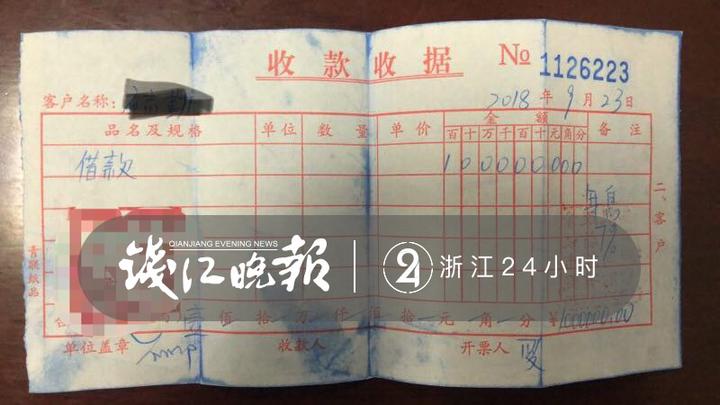 收款收据 № 1126223
客户名称：
2018年9月23日
品名及规格 单位 数量 单价 金额 备注
百十万千百十元角分
借款 100000000
月息
二、客户
QIANJIANG EVENING NEWS
钱江晚报 24 浙江24小时
青联纸品
壹佰拾万仟佰拾元角分 ¥1000000.00
单位盖章 收款人 开票人